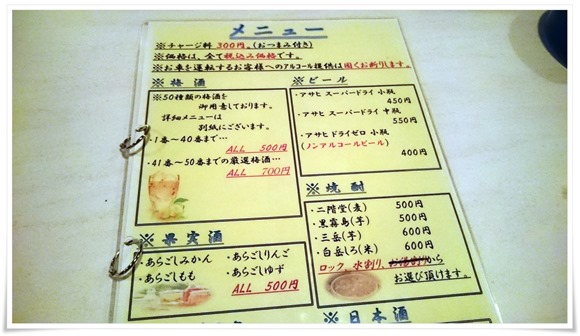 メニュー
※チャージ料 300円。(おつまみ付き)
※価格は、全て税込み価格です。
※お車を運転するお客様へのアルコール提供は固くお断りします。
※梅酒
※50種類の梅酒を
御用意しております。
詳細メニューは
別紙にございます。
・1番~40番まで…
ALL 500円
・41番~50番までの厳選梅酒…
ALL 700円
※ビール
・アサヒ スーパードライ 小瓶
450円
・アサヒ スーパードライ 中瓶
550円
・アサヒ ドライゼロ 小瓶
(ノンアルコールビール)
400円
※焼酎
・二階堂(麦) 500円
・黒霧島(芋) 500円
・三岳(芋) 600円
・白岳しろ(米) 600円
ロック、水割り、お湯割りから
お選び頂けます。
※果実酒
・あらごしみかん ・あらごしりんご
・あらごしもも ・あらごしゆず
ALL 500円
※日本酒